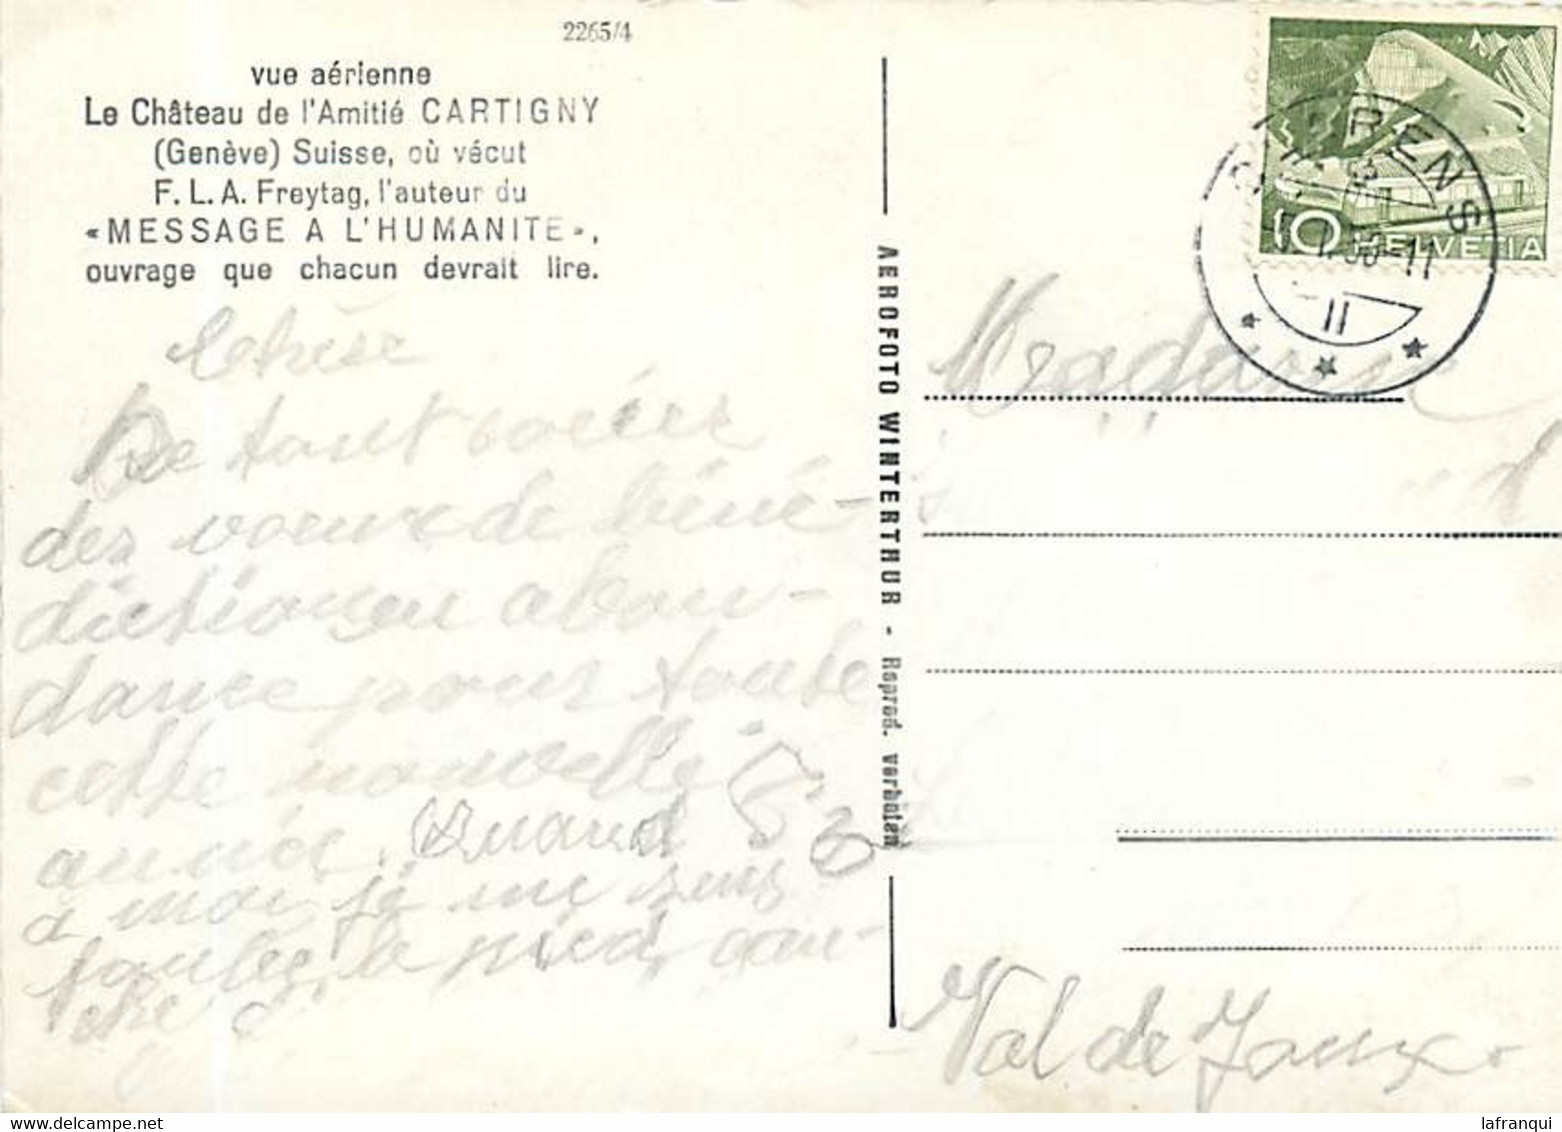 2265/4
vue aérienne
Le Château de l'Amitié CARTIGNY
(Genève) Suisse, où vécut
F. L. A. Freytag, l'auteur du
«MESSAGE A L'HUMANITE»,
ouvrage que chacun devrait lire.
De tout coeur
des voeux de béné-
diction en abon-
dance pour toute
cette nouvelle
année. Quand
a moi je me sens
le pied
AEROFOTO WINTERTHUR - Reprod. verboten
RENS
10 HELVETIA
-11
Madame
Val de Joux
lafranqui